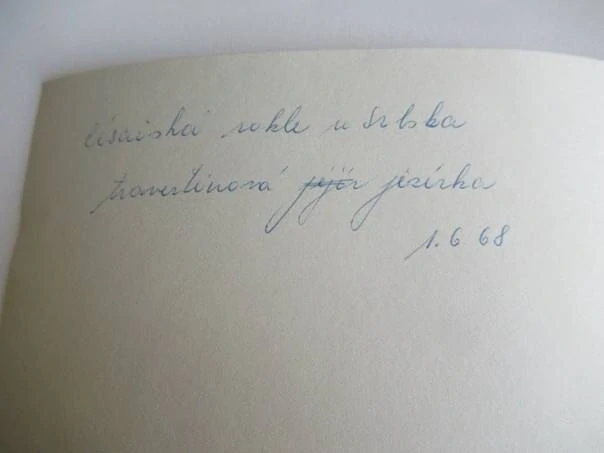 císařská rokle u Srbska
travertinová jezírka
1. 6 68